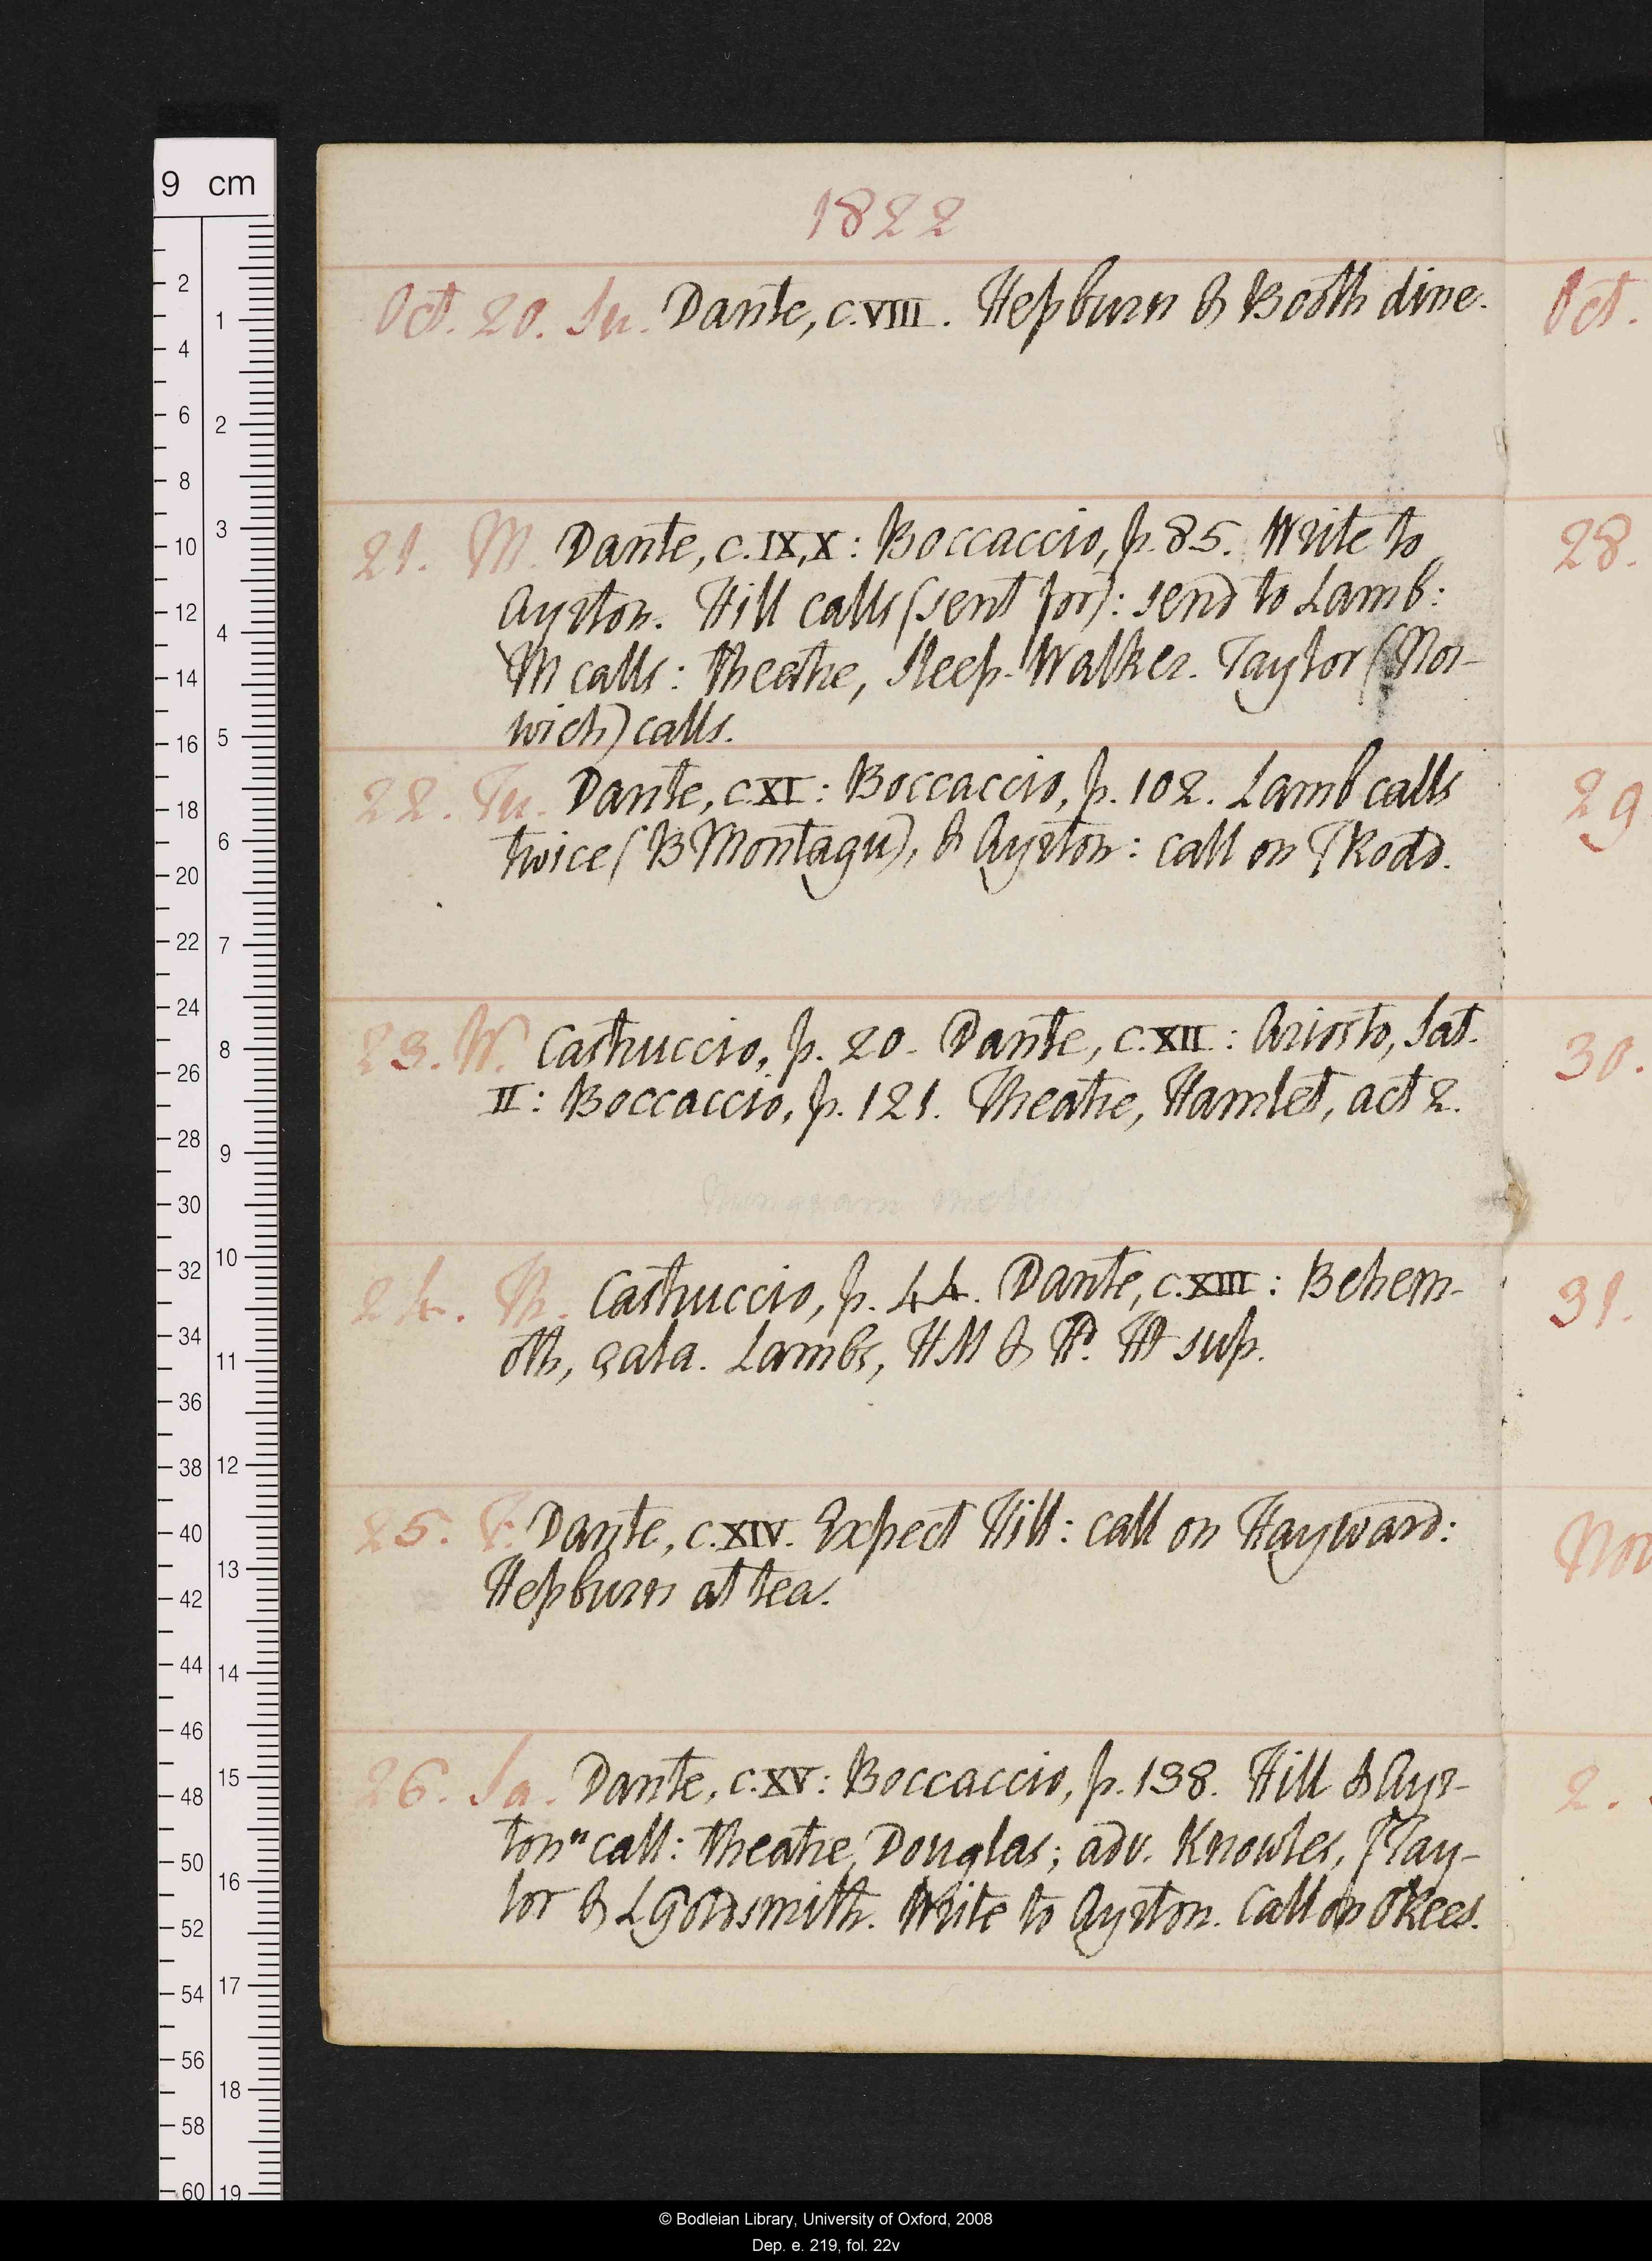 1822
Oct. 20. Su. Dante, c. VIII. Hepburn & Booth dine.
21. M. Dante, c. IX, X: Boccaccio, p. 85. Write to
Ayrton. Hill calls (sent for): send to Lamb:
M calls: theatre, Sleep-Walker. Taylor (Nor-
wich) calls.
22. Tu. Dante, c. XI: Boccaccio, p. 102. Lamb calls
twice (B Montagu), & Ayrton: call on T Rodd.
23. W. Castruccio, p. 20. Dante, c. XII: Ariosto, Sat.
II: Boccaccio, p. 121. Theatre, Hamlet, act 2.
24. Th. Castruccio, p. 44. Dante, c. XIII: Behem-
oth, çala. Lambs, HM & sup.
25. F. Dante, c. XIV. Expect Hill: call on Hayward:
Hepburn at tea.
26. Sa. Dante, c. XV: Boccaccio, p. 138. Hill & Ayr-
ton" call: theatre, Douglas; adv. Knowles, J Tay-
lor & L Goldsmith. Write to Ayrton. Call on Okees.
Oct.
28.
29
30.
31.
Nov
2.
9 cm
2
4
6
8
10
12
14
16
18
20
22
24
26
28
30
32
34
36
38
40
42
44
46
48
50
52
54
56
58
60
1
2
3
4
5
6
7
8
9
10
11
12
13
14
15
16
17
18
19
© Bodleian Library, University of Oxford, 2008
Dep. e. 219, fol. 22v